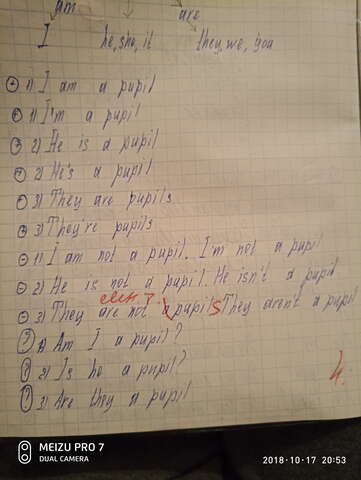 am are
I he, she, it they, we, you
1) I am a pupil
1) I'm a pupil
2) He is a pupil
2) He's a pupil
3) They are pupils
3) They're pupils
1) I am not a pupil. I'm not a pupil
2) He is not a pupil. He isn't a pupil
3) They are not a pupils They aren't a pupil
1) Am I a pupil?
2) Is he a pupil?
3) Are they a pupil
4.
MEIZU PRO 7
DUAL CAMERA
2018-10-17 20:53